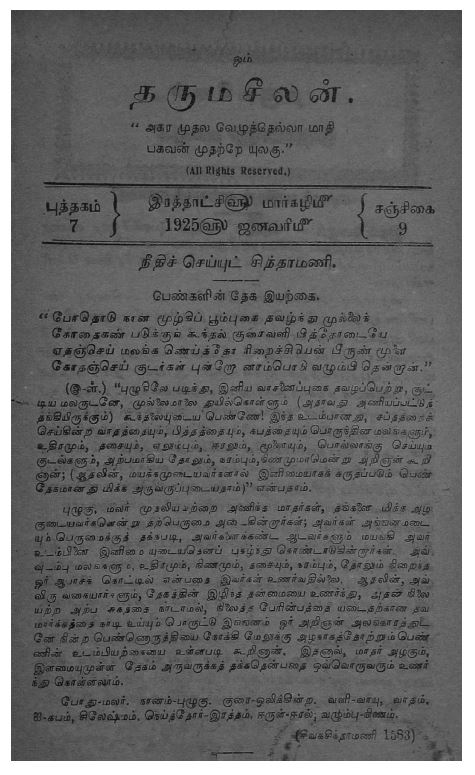 ஓம்
தருமசீலன்.
“ அகர முதல வேழுத்தெல்லா மாதி
பகவன் முதற்றே யுலகு.”
(All Rights Reserved.)
புத்தகம் 7 } இரத்தாட்சி௵ மார்கழிமீ 1925௵ ஜனவரிமீ { சஞ்சிகை 9
நீதிச் செய்யுட் சிந்தாமணி.
பெண்களின் தேக இயற்கை.
“ போதொடு கான மூழ்கிப் பூம்புகை தவழ்ந்து முல்லைக்
கோதைகண் படுக்குங் கூந்தல் குரைவளி பித்தோடையே
ஏதஞ்செய் மலங்க ணெய்த்தோ ரிறைச்சியென் பீருண் மூளை
கோதஞ்செய் குடர்கள் புன்றோ னரம்பொடு வழும்பி தென்றான்.”
(இ-ள்.) “புழுகிலே படிந்து, இனிய வாசனைப்புகை தவழப்பெற்று, சூட்
டிய மலருடனே, முல்லைமாலை துயில்கொள்ளும் (அதாவது அணியப்பட்டுத்
தங்கியிருக்கும்) கூந்தலையுடைய பெண்ணே! இந்த உடம்பானது, சப்தத்தைச்
செய்கின்ற வாதத்தையும், பித்தத்தையும், கபத்தையும் பொருந்தின மலங்களும்,
உதிரமும், தசையும், எலும்பும், ஈரலும், மூளையும், பொல்லாங்கு செய்யும்
குடல்களும், அற்பமாகிய தோலும், நரம்பும், நிணமுமாமென்று அறிஞன் கூறி
னான்; (ஆதலின், மயக்கமுடையவர்களால் இனிமையாகக் கருதப்படும் பெண்
தேகமானது மிக்க அருவருப்புடையதாம்)” என்பதாம்.
புழுகு, மலர் முதலியவற்றை அணிந்த மாதர்கள், தங்களை மிக்க அழ
குடையவர்களென்று தற்பெருமை அடைகின்றார்கள்; அவர்கள் அங்ஙனமடை
யும் பெருமைக்குத் தக்கபடி, அவர்களைக்கண்ட ஆடவர்களும் மயங்கி அவர்
உடம்பினை இனிமை யுடையதெனப் புகழ்ந்து கொண்டாடுகின்றார்கள். அவ்
வுடம்பு மலங்களும், உதிரமும், நிணமும், தசையும், நரம்பும், தோலும் நிறைந்த
ஓர் ஆபாசக் கொட்டில் என்பதை இவர்கள் உணர்வதில்லை. ஆதலின், அவ்
விரு வகையார்களும், தேகத்தின் இழிந்த தன்மையை உணர்ந்து, அதன் நிலை
யற்ற அற்ப சுகத்தை நாடாமல், நிலைத்த பேரின்பத்தை யடைதற்கான தவ
மார்க்கத்தை நாடி உய்யும் பொருட்டு இங்ஙனம் ஓர் அறிஞன் அலங்காரத்துட
னே நின்ற பெண்ணொருத்தியை நோக்கி மேலுக்கு அழகாகத்தோற்றும் பெண்
ணின் உடம்பியற்கையை உள்ளபடி கூறினான். இதனால், மாதர் அழகும்,
இளமையுமுள்ள தேகம் அருவருக்கத் தக்கதென்பதை ஒவ்வொருவரும் உணர்
ந்து கொள்ளலாம்.
போது-மலர். கானம்-புழுகு. குரை-ஒலிக்கின்ற. வளி-வாயு, வாதம்.
ஐ-கபம், சிலேஷ்மம். நெய்த்தோர்-இரத்தம். ஈருள்-ஈரல்; வழும்பு-நிணம்.
(சீவகசிந்தாமணி 1583)